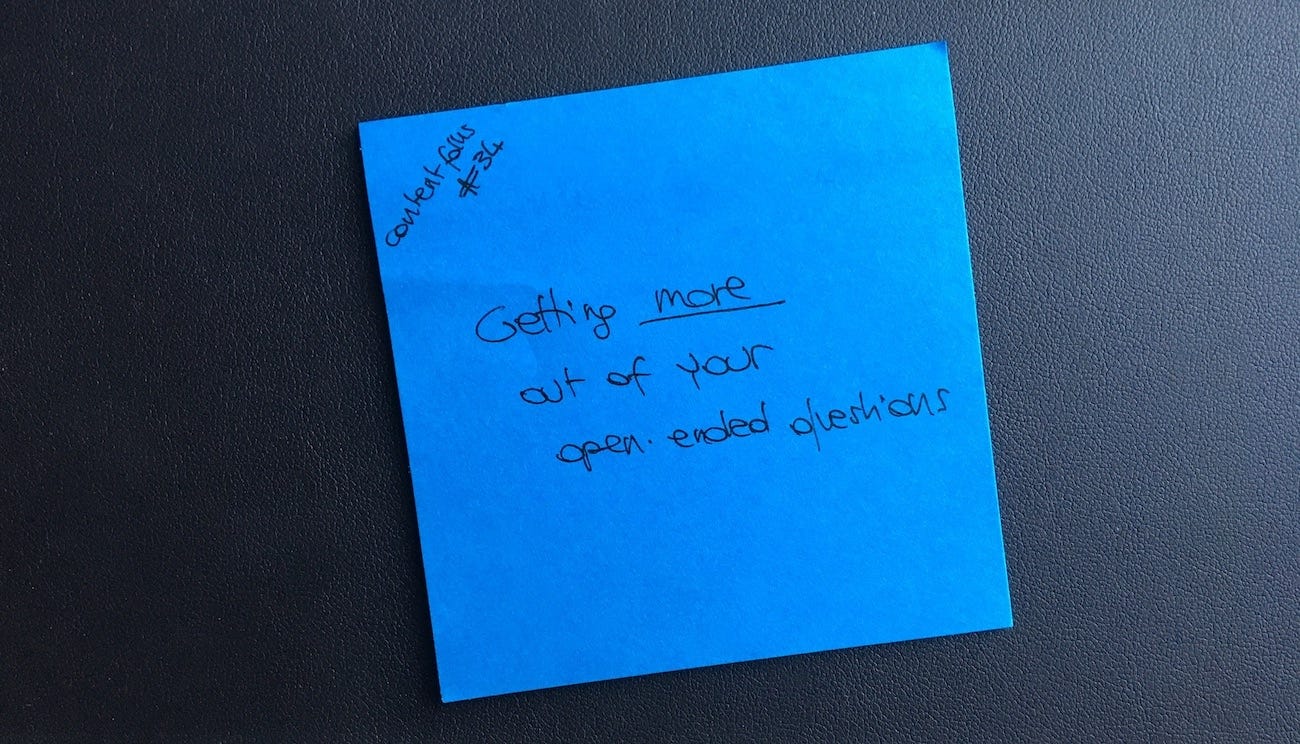 content folks
#34
Getting more
out of your
open-ended questions